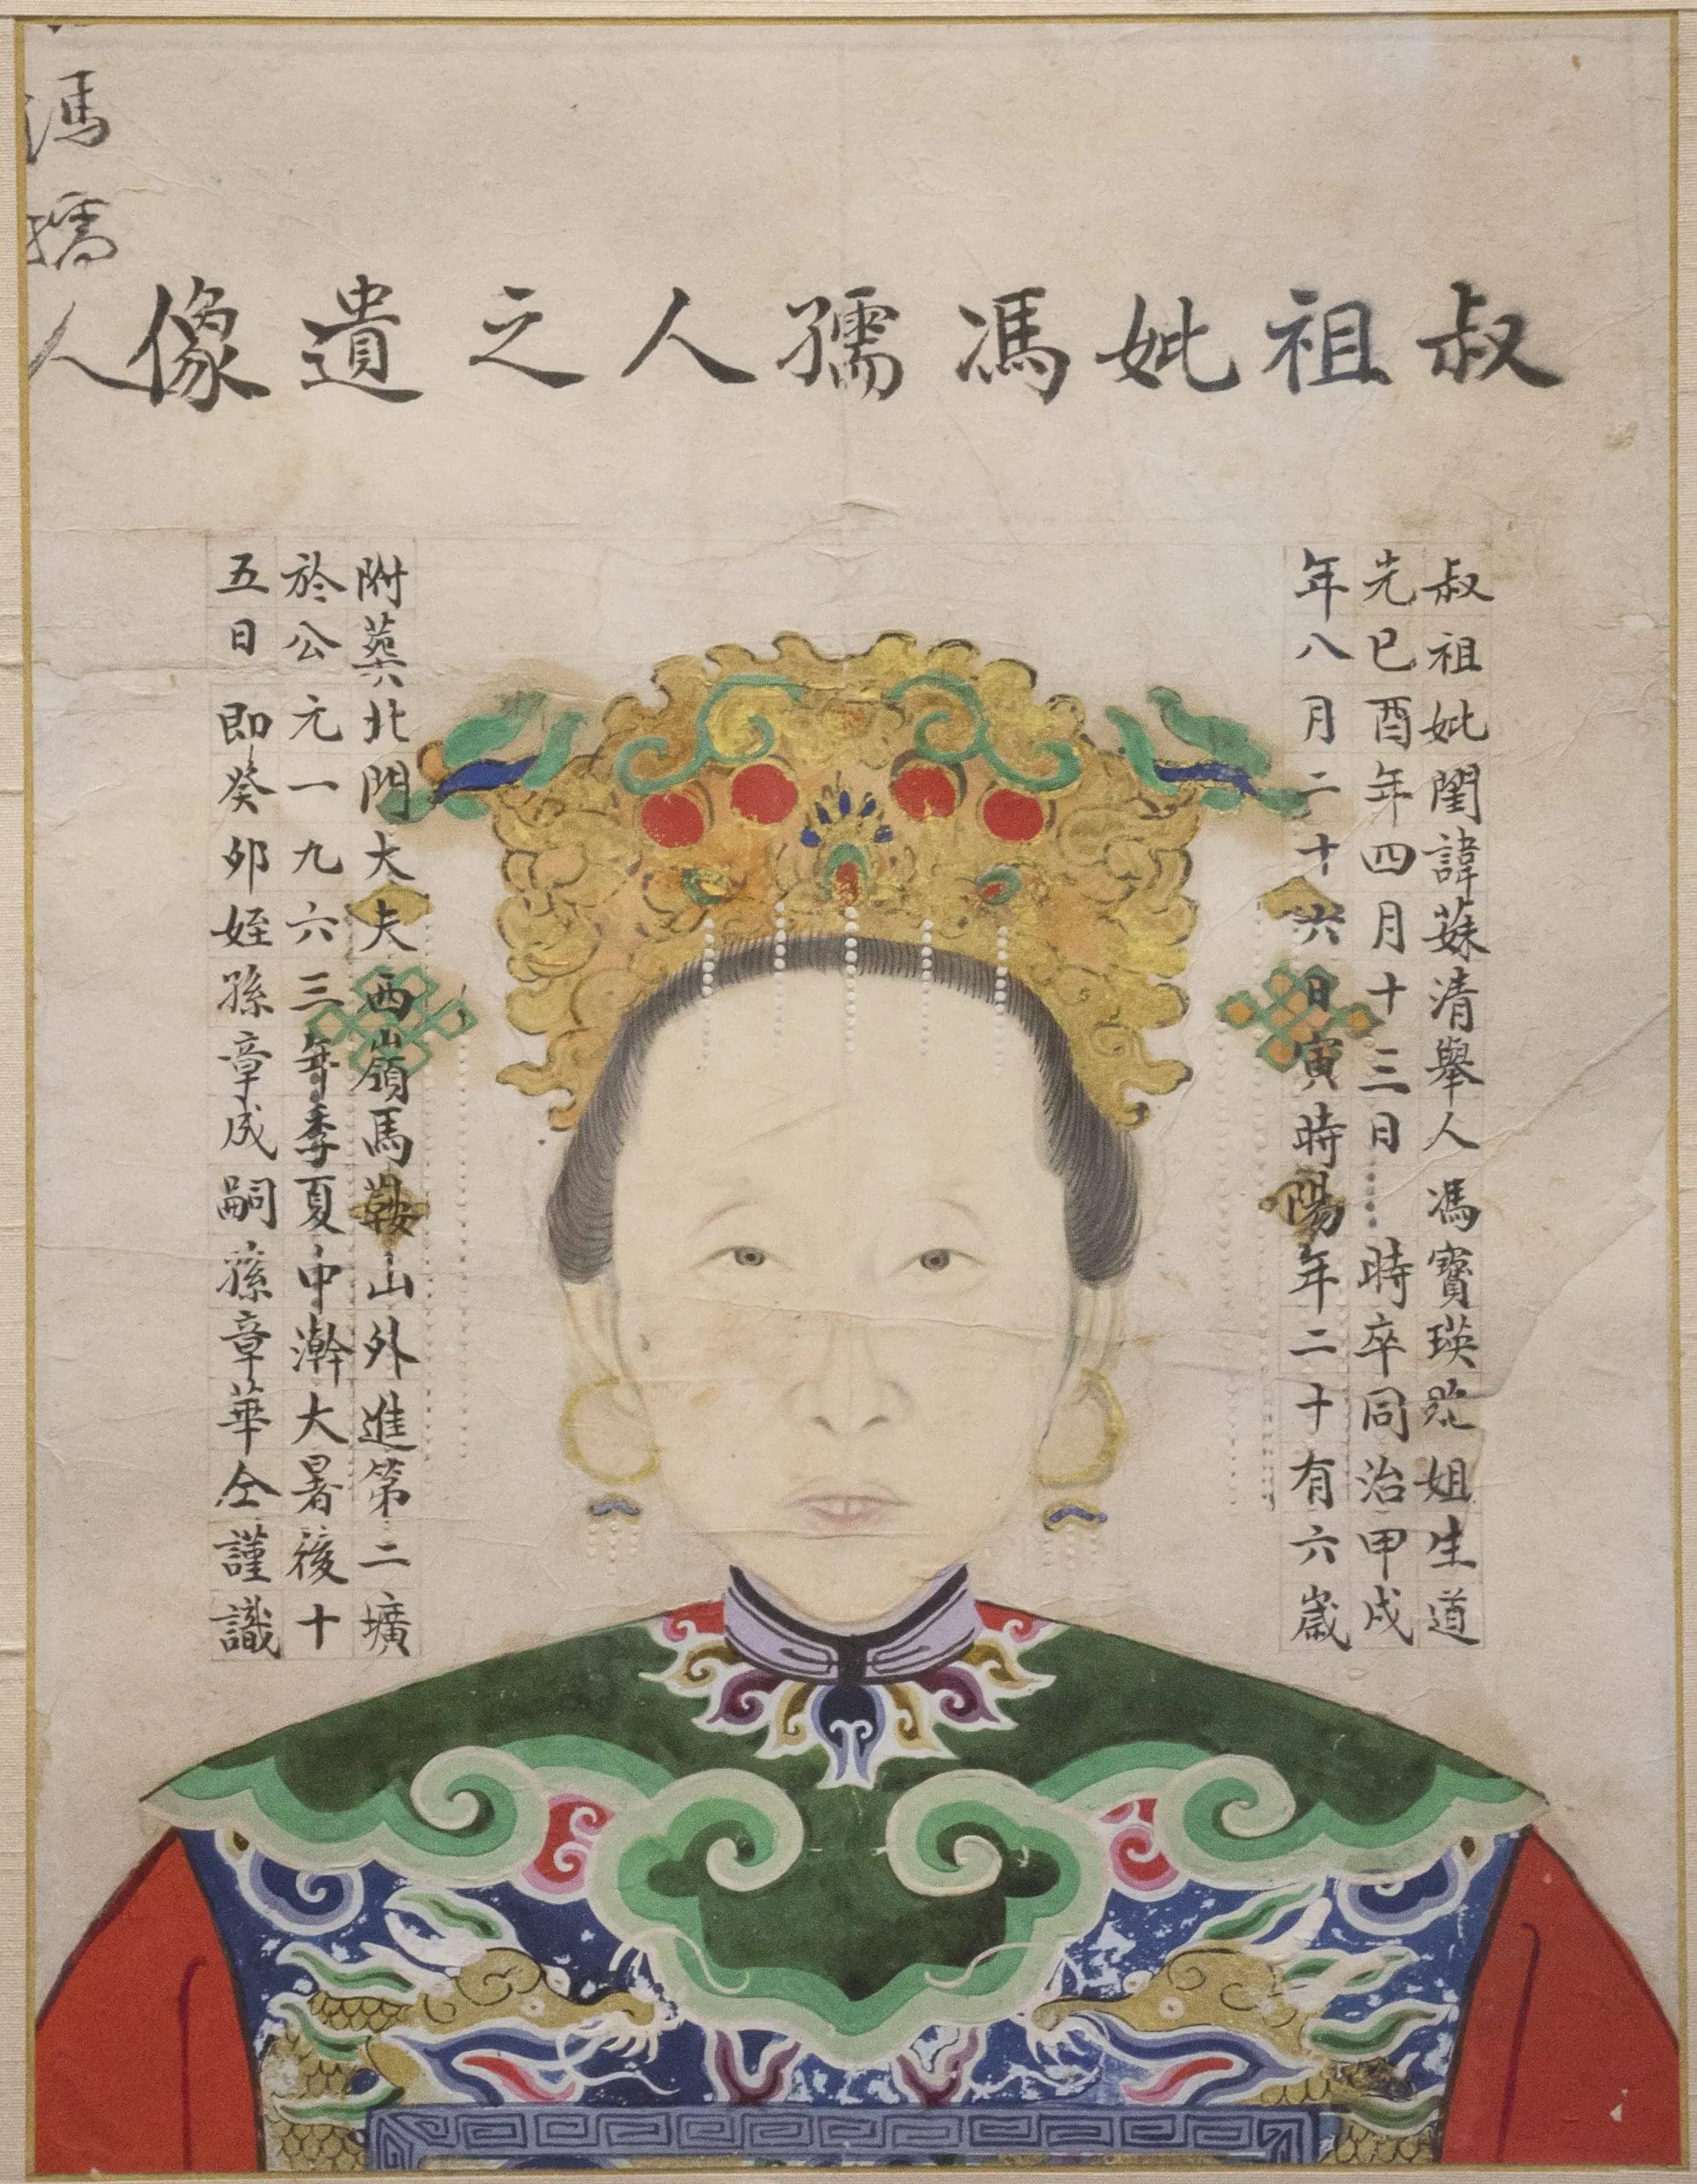 馮孺人
叔祖妣馮孺人之遺像
叔祖妣閨諱清舉人馮寶瑛姐生道
光己酉年四月十三日 時卒同治甲戌
年八月二十六日寅時陽年二十有六歲
附葬北門大夫西嶺馬鞍山外進第二壙
於公元一九六三年季夏中澣大暑後十
五日即癸卯姪孫章成嗣孫章華仝謹識